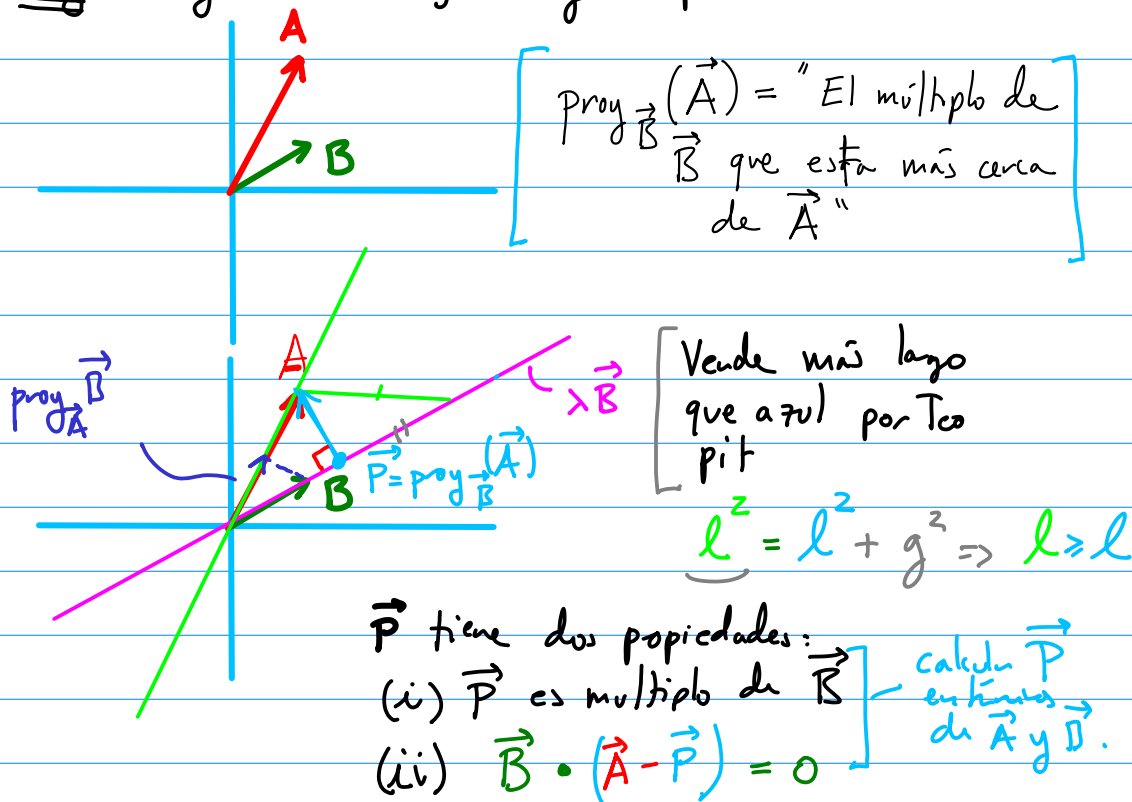 A
B
proy_B⃗ (A⃗) = "El múltiplo de
B⃗ que esta más cerca
de A⃗"
A
proy_A⃗ B⃗
λB⃗
P⃗ = proy_B⃗ (A⃗)
B
Verde más largo
que azul por Teo
pit
l² = l² + g² => l ≥ l
P⃗ tiene dos propiedades:
(i) P⃗ es multiplo de B⃗
(ii) B⃗ • (A⃗ - P⃗) = 0
calcular P⃗
en términos
de A⃗ y B⃗.